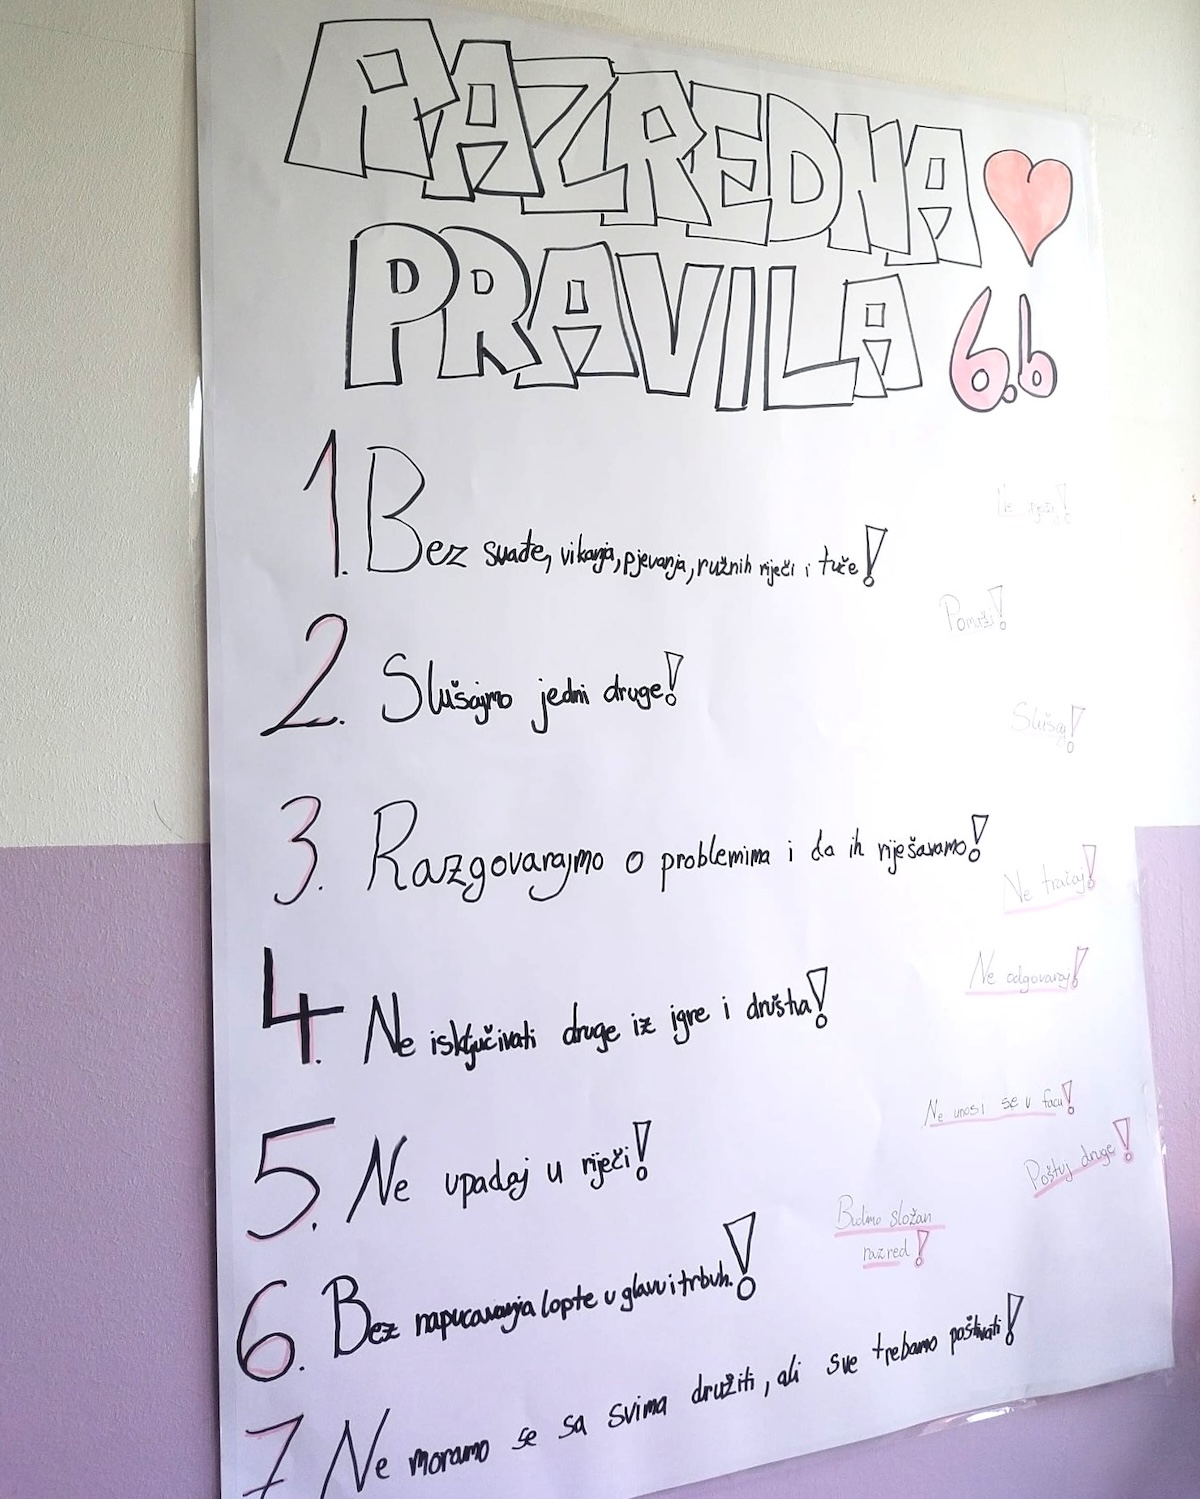 RAZREDNA
PRAVILA 6.b
1. Bez svađe, vikanja, pjevanja, ružnih riječi i tuče!
2. Slušajmo jedni druge!
3. Razgovarajmo o problemima i da ih rješavamo!
4. Ne isključivati druge iz igre i društa!
5. Ne upadaj u riječi!
6. Bez napucavanja lopte u glavu i trbuh!
7 Ne moramo se sa svima družiti, ali sve trebamo poštivati!
Ne
Slušaj!
Ne tračaj!
Ne odgovaraj!
Ne unosi se u facu!
Poštuj druge!
Budimo složan
razred!